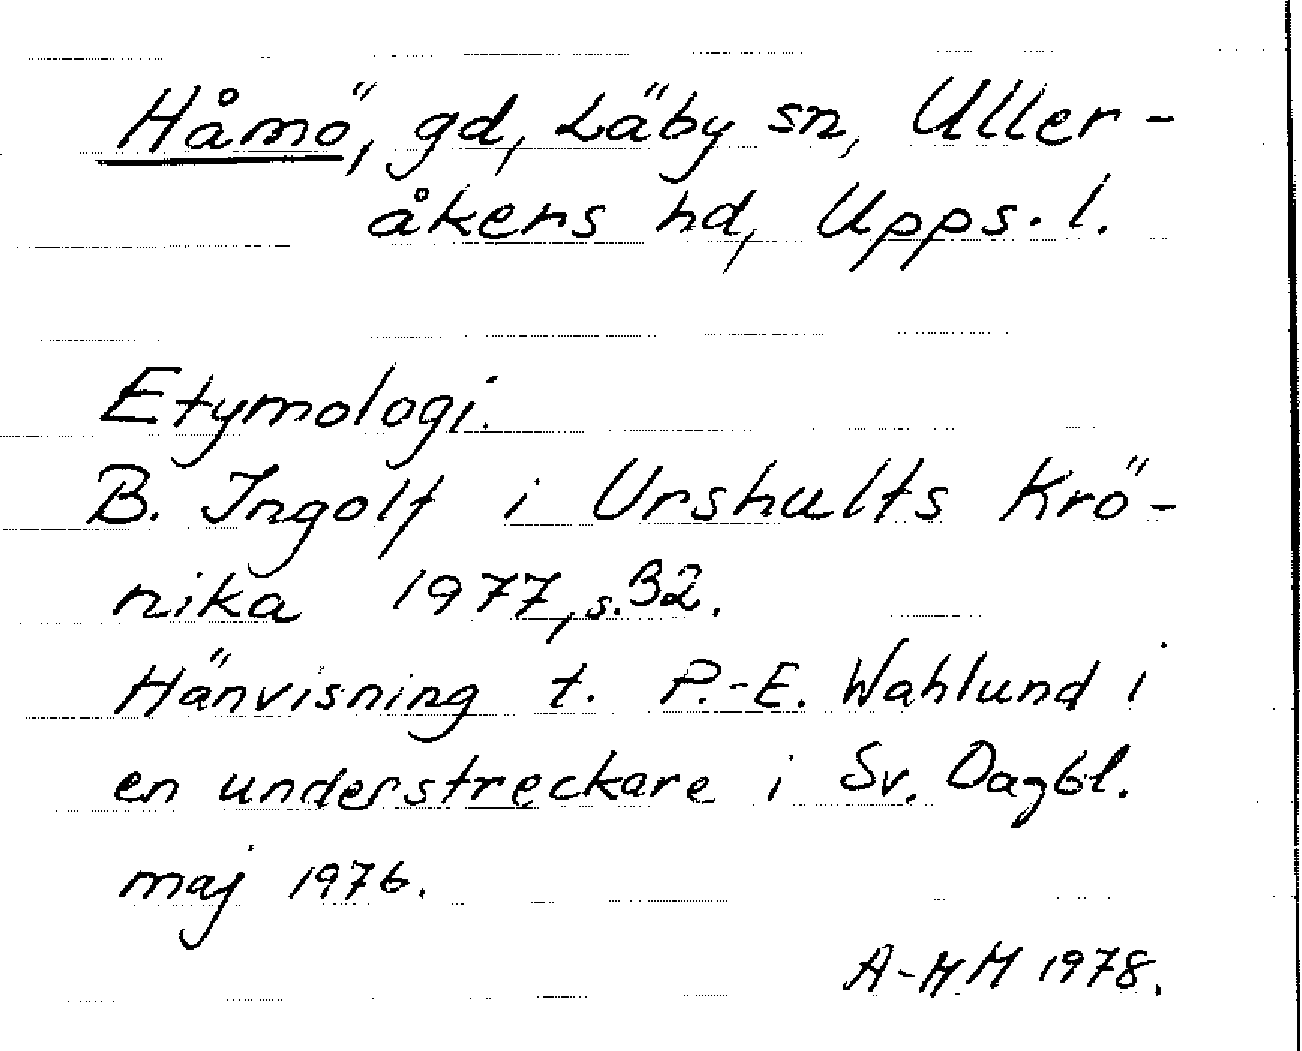 Håmö, gd, Läby sn, Uller-
åkers hd, Upps. l.
Etymologi.
B. Ingolf i Urshults Krö-
nika 1977, s. 32.
Hänvisning t. P.-E. Wahlund i
en understreckare i Sv. Dagbl.
maj 1976.
A-MM 1978.